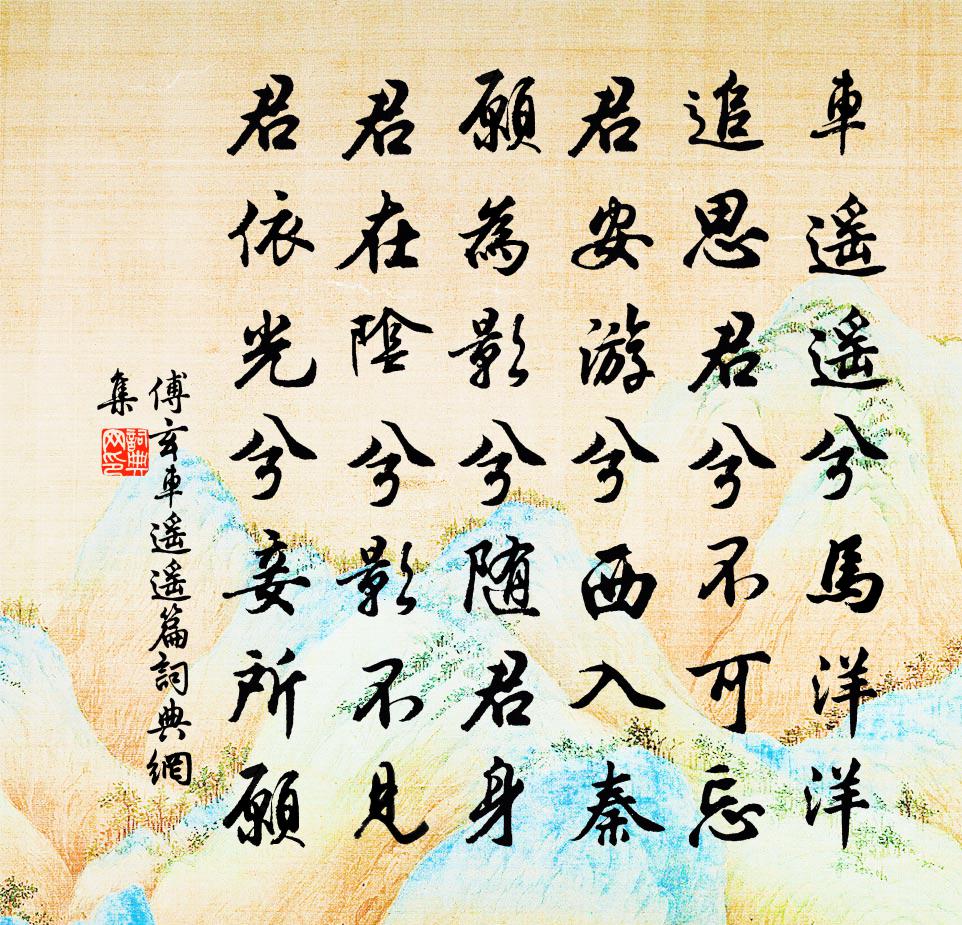 車遥遥兮馬洋洋
追思君兮不可忘
君安游兮西入秦
願為影兮随君身
君在陰兮影不見
君依光兮妾所願
傅玄車遥遥篇詞典網
集
詞典
网印